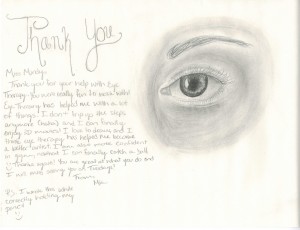 Thank You
Miss Mindy,
Thank you for your help with Eye
Therapy. You were really fun to work with!
Eye Therapy has helped me with a lot
of things! I don't
anymore
and I can finally
enjoy 3D movies! I love to draw, and I
think eye therapy has helped me become
a better artist. I am also more confident
in gym, cause I can finally catch a ball
Thanks again! You are great at what you do and
I will miss seeing you on Tuesdays!
From,
P.S. I wrote this while
correctly holding my
pencil